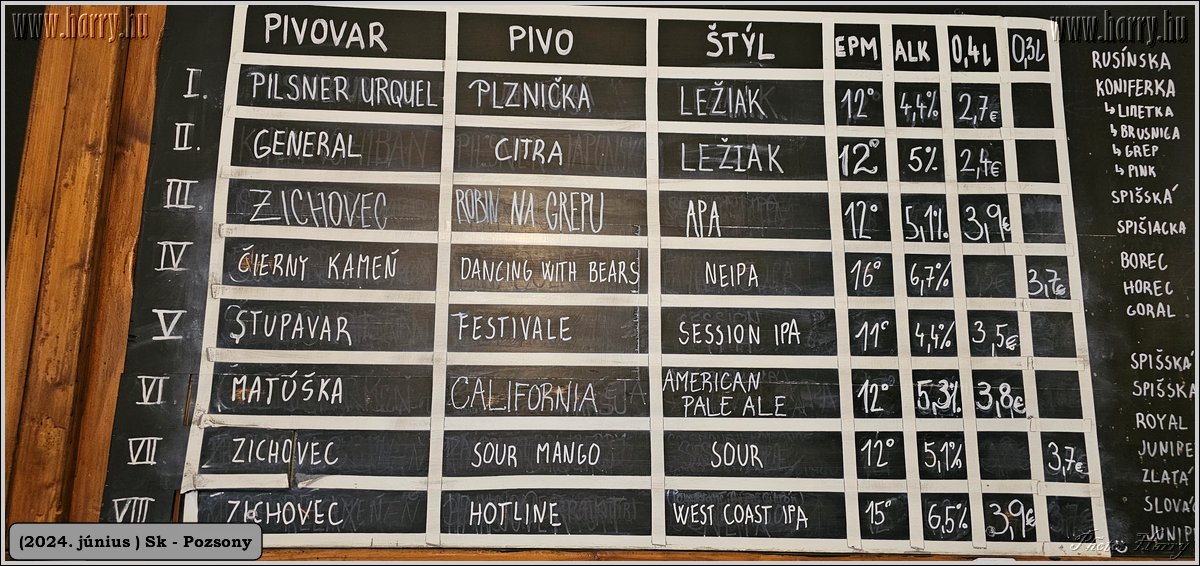 www.harry.hu
www.harry.hu
PIVOVAR PIVO ŠTÝL EPM ALK 0,4l 0,3l
I. PILSNER URQUEL PLZNIČKA LEŽIAK 12° 4,4% 2,7€
II. GENERAL CITRA LEŽIAK 12° 5% 2,4€
III. ZICHOVEC ROBIN NA GREPU APA 12° 5,1% 3,9€
IV ČIERNY KAMEŇ DANCING WITH BEARS NEIPA 16° 6,7% 3,7€
V STUPAVAR FESTIVALE SESSION IPA 11° 4,4% 3,5€
VI MATÚŠKA CALIFORNIA AMERICAN PALE ALE 12° 5,3% 3,8€
VII ZICHOVEC SOUR MANGO SOUR 12° 5,1% 3,7€
VIII ZICHOVEC HOTLINE WEST COAST IPA 15° 6,5% 3,9€
RUSÍNSKA
KONIFERKA
↳ LIMETKA
↳ BRUSNICA
↳ GREP
↳ PINK
SPIŠSKÁ
SPIŠIACKA
BOREC
HOREC
GORAL
SPIŠSKÁ
SPIŠSKÁ
ROYAL
JUNIPE
ZLATÁ
SLOVÁ
JUNIP
(2024. június ) Sk - Pozsony
Photo Harry